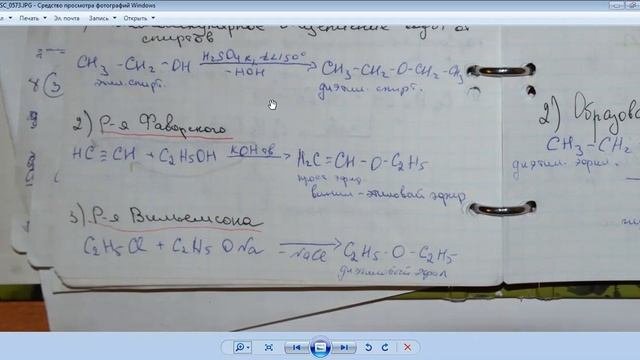 SC_0573.JPG - Средство просмотра фотографий Windows
Печать
Эл. почта
Запись
Открыть
спиртов
8 (3
CH3 - CH2 - OH H2SO4 к, t<150° -HOH → CH3-CH2-O-CH2-CH3
этил. спирт.
диэтил. спирт.
2) Р-я Фаворского
HC≡CH + C2H5OH KOH тв → H2C=CH-O-C2H5
винил-этиловый эфир
3) Р-я Вильямсона
C2H5Cl + C2H5ONa -NaCl → C2H5-O-C2H5
диэтиловый эфир
2) Образова
CH3-CH2
диэтил. эфир.